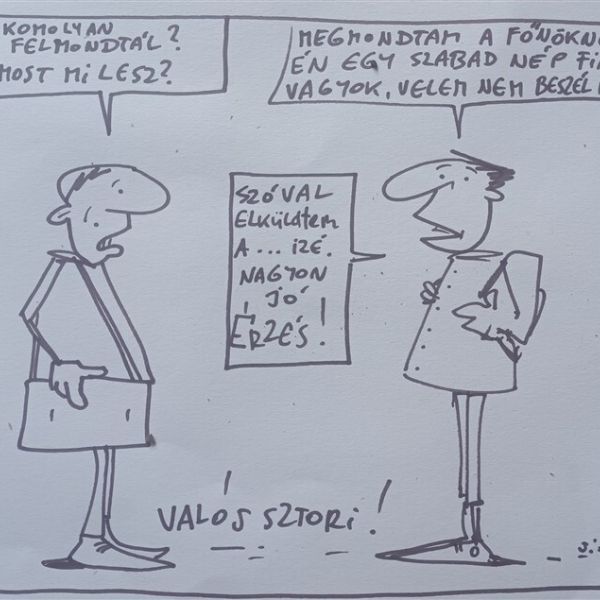 KOMOLYAN
FELMONDTÁL?
MOST MI LESZ?
MEGMONDTAM A
ÉN EGY SZABAD NÉP
VAGYOK, VELEM NEM BESZÉL
SZÓVAL
ELKÜLDTEM
A... IZÉ.
NAGYON
JÓ
ÉRZÉS!
VALÓS SZTORI!